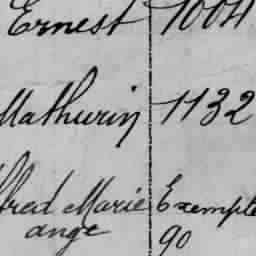 Ernest 1004
Mathurin 1132
fred Marie Exempté
ange 90